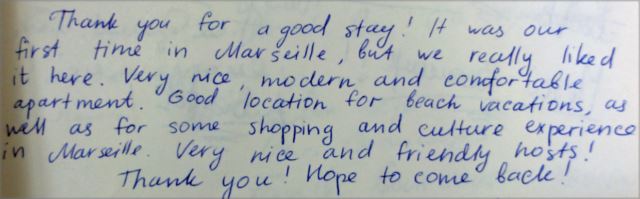 Thank you for a good stay! It was our
first time in Marseille, but we really liked
it here. Very nice, modern and comfortable
apartment. Good location for beach vacations, as
well as for some shopping and culture experience
in Marseille. Very nice and friendly hosts!
Thank you! Hope to come back!